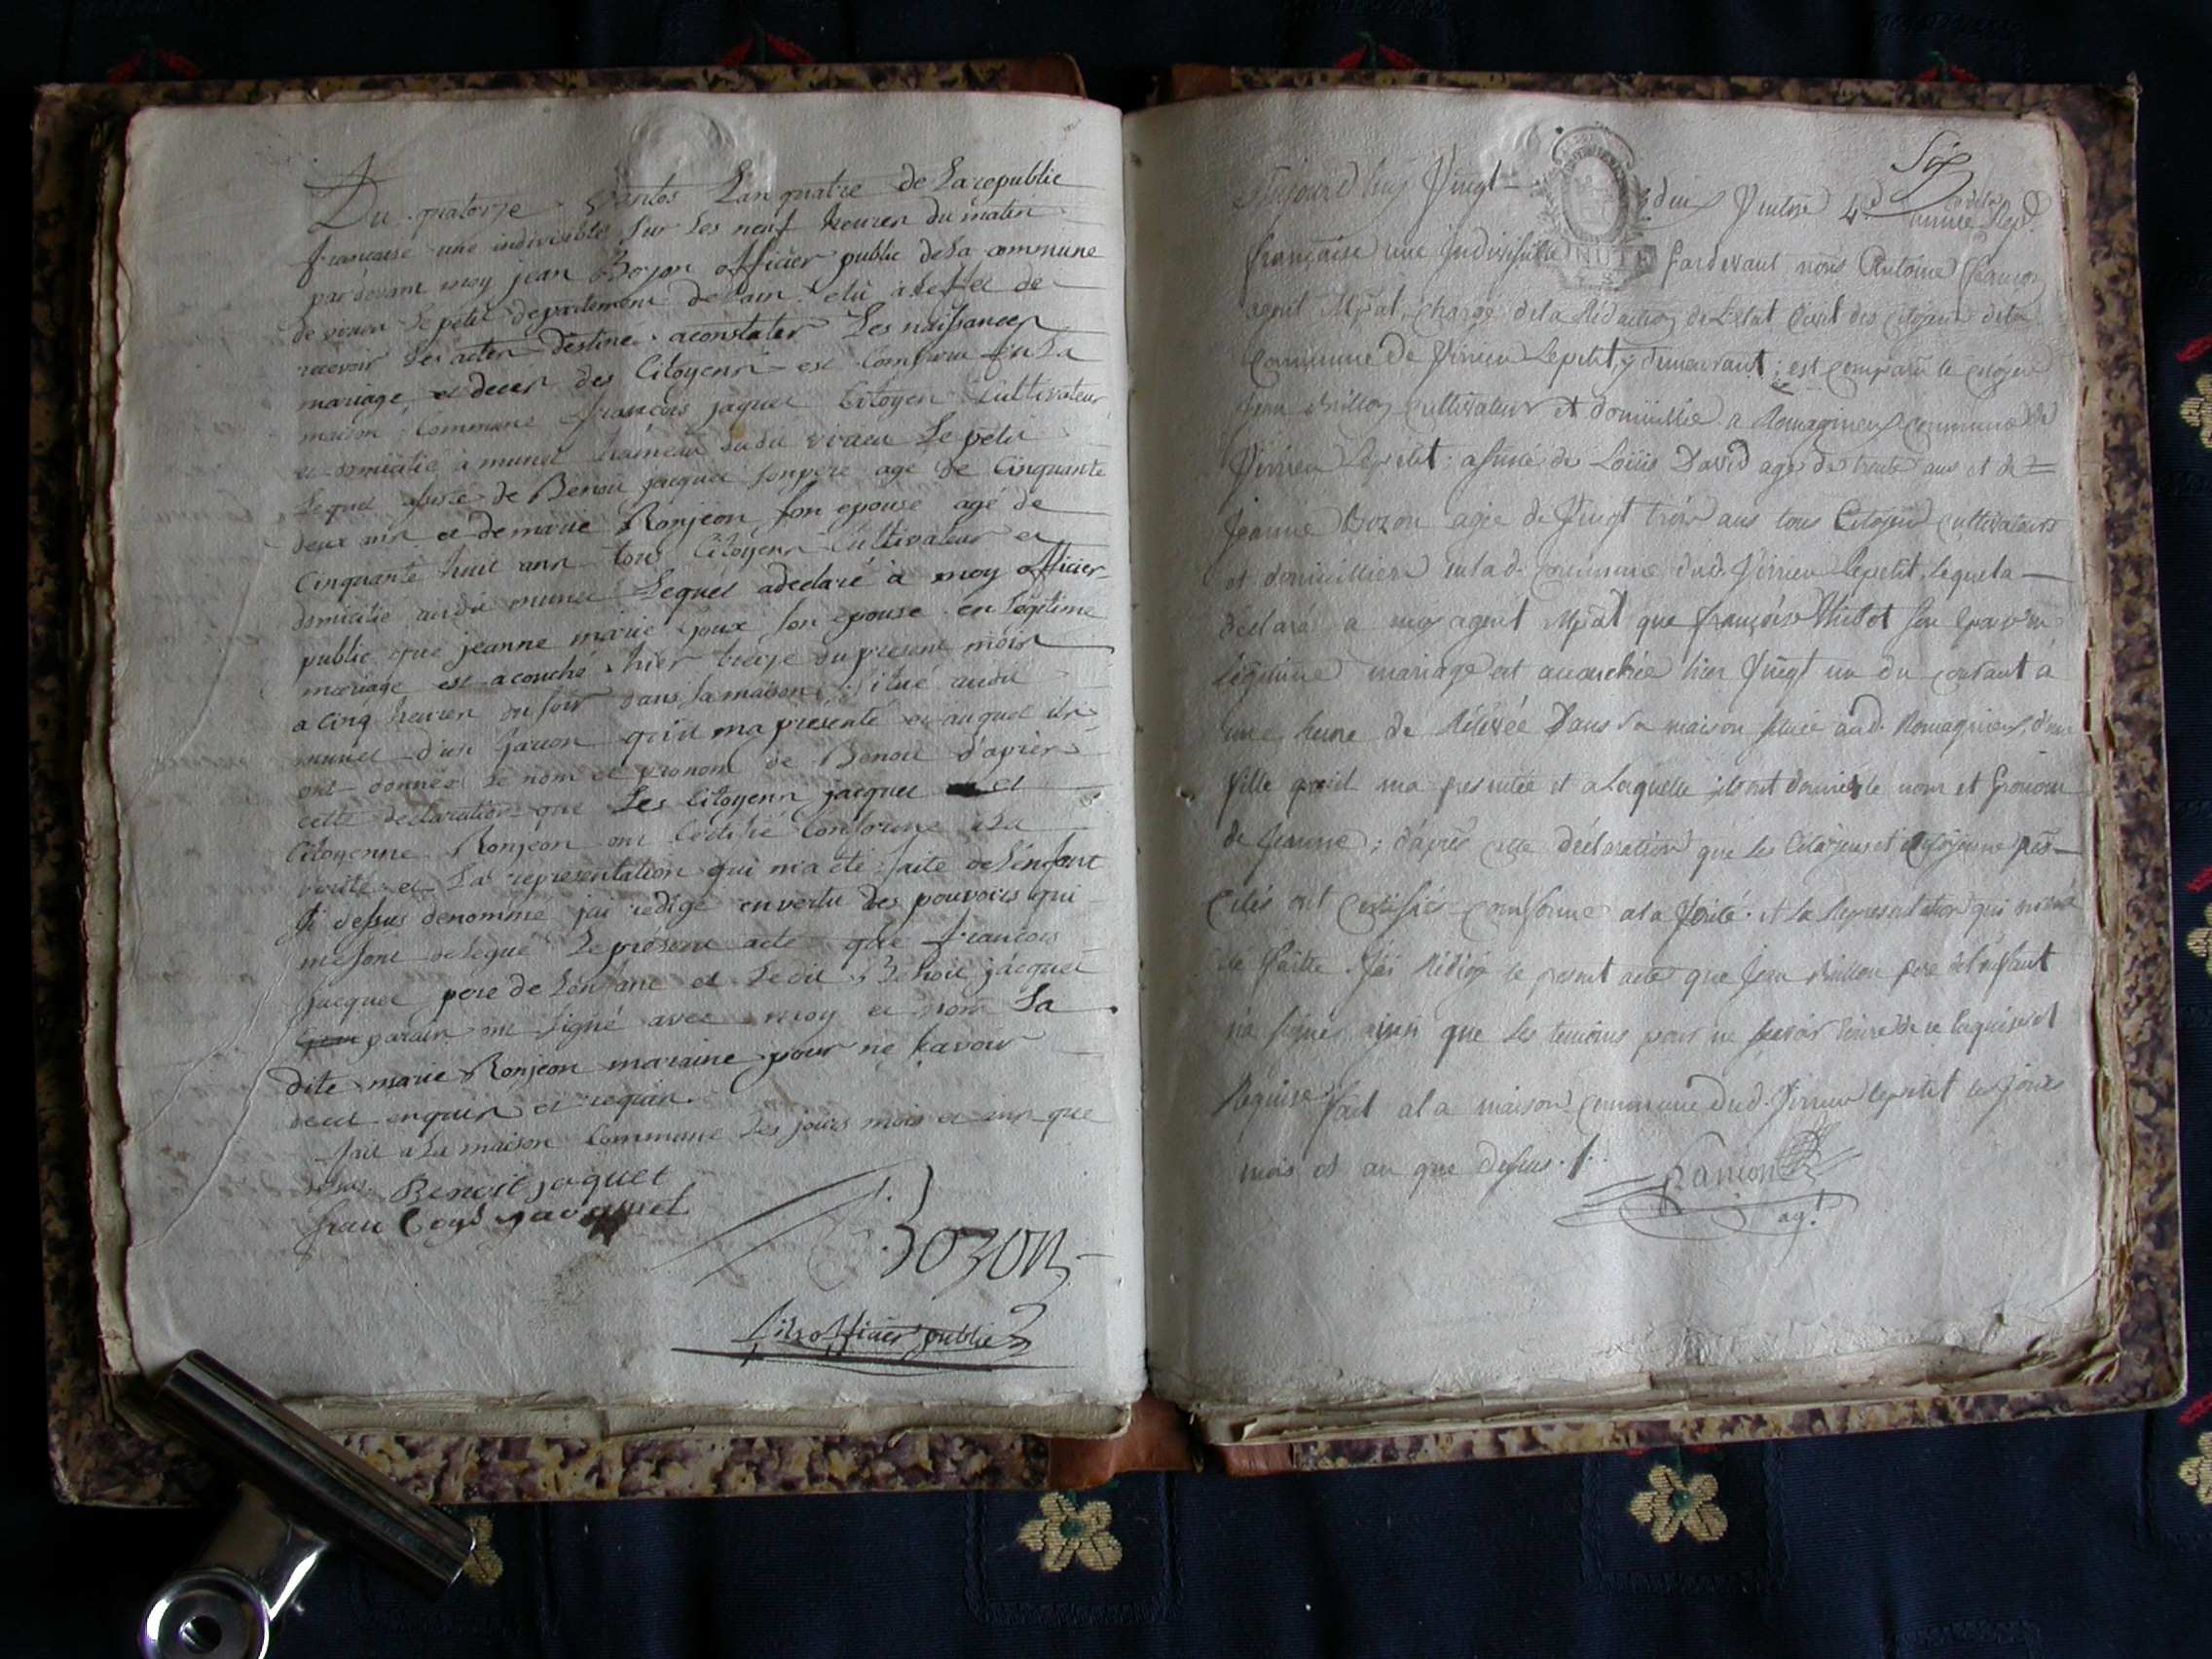 Du quatorze vantos Lan quatre de La republic
francaise une indivisible Sur Les neuf heures du matin
pardevant moy jean Bozon officier public dela commune
de virieu Le petit departement de Lain elu a Leffet de
recevoir Les actes destine aconstater Les naissances
mariage et deces des Citoyens est Comparu en La
maison Commune francois jaquet Citoyen Cultivateur
et domicilie à munet hameau dudit virieu Le petit
Lequel de Benoit jacquet son pere age de Cinquante
deux ans et de marie Ronjeon son epouse agé de
Cinquante huit ans tous Citoyens Cultivateur et
domicilie audit munet Lequel adeclaré à moy officier
public que jeanne marie joux son epouse en Legitime
mariage est acouché hier treize du present mois
a Cinq heures du soir dans sa maison situé audit
munet d'un garcon qu'il ma presenté et auquel ils
ont donnée Le nom et pronom de Benoit d'après
cette declaration que Les Citoyens jacquet et
Citoyenne Ronjeon ont Certifié Conforme a La
verité et La representation qui m'a été faite de L'enfant
si dessus denommé jai redigé en vertu des pouvoirs qui
me sont delegué Le present acte que francois
jacquet pere de Lenfant et Ledit Benoit jacquet
parain ont signé avec moy et non La
dite marie Ronjeon maraine pour ne savoir
de ce enquis et requis
fait a La maison Commune Les jours mois et ans que
Benoit jaquet
fran Coys jacquet
Bozon
fils officier public
Six
Aujourd'huy Vingt deux Ventose 4e année Rep
française une Indivisible Pardevant nous Antoine
agent Mpal chargé de la Rédaction de L'Etat Civil des citoyens de la
Commune de Virieu Lepetit y demeurant ; est comparu le citoyen
Jean cultivateur et domicillié a Romagnieu commune de
Virieu Lepetit ; assisté de Loüis David agé de trente ans et de
Jeanne Bozon agée de Vingt trois ans tous Citoyens cultivateurs
et domicilliers en lad. commune dud. Virieu lepetit, lequel a
déclaré a moy agent Mpal que françoise en
légitime mariage est accouchée hier Vingt un du courant à
une heure de Relevée Dans sa maison située aud. Romagnieu, d'une
fille qu'il ma presentée et a Laquelle ils ont donnés le nom et Pronom
de Jeanne ; d'après cette déclaration que Les Citoyens et citoyenne
Cités ont Certifiés conforme a la Vérité et la Représentation qui m'en a
été faitte. J'ai Rédigé le present acte que Jean pere de l'enfant
n'a signé ainsi que Les temoins pour ne scavoir de ce Enquis et
Requis fait a la maison commune dud. Virieu lepetit les jours
mois et an que dessus
agt